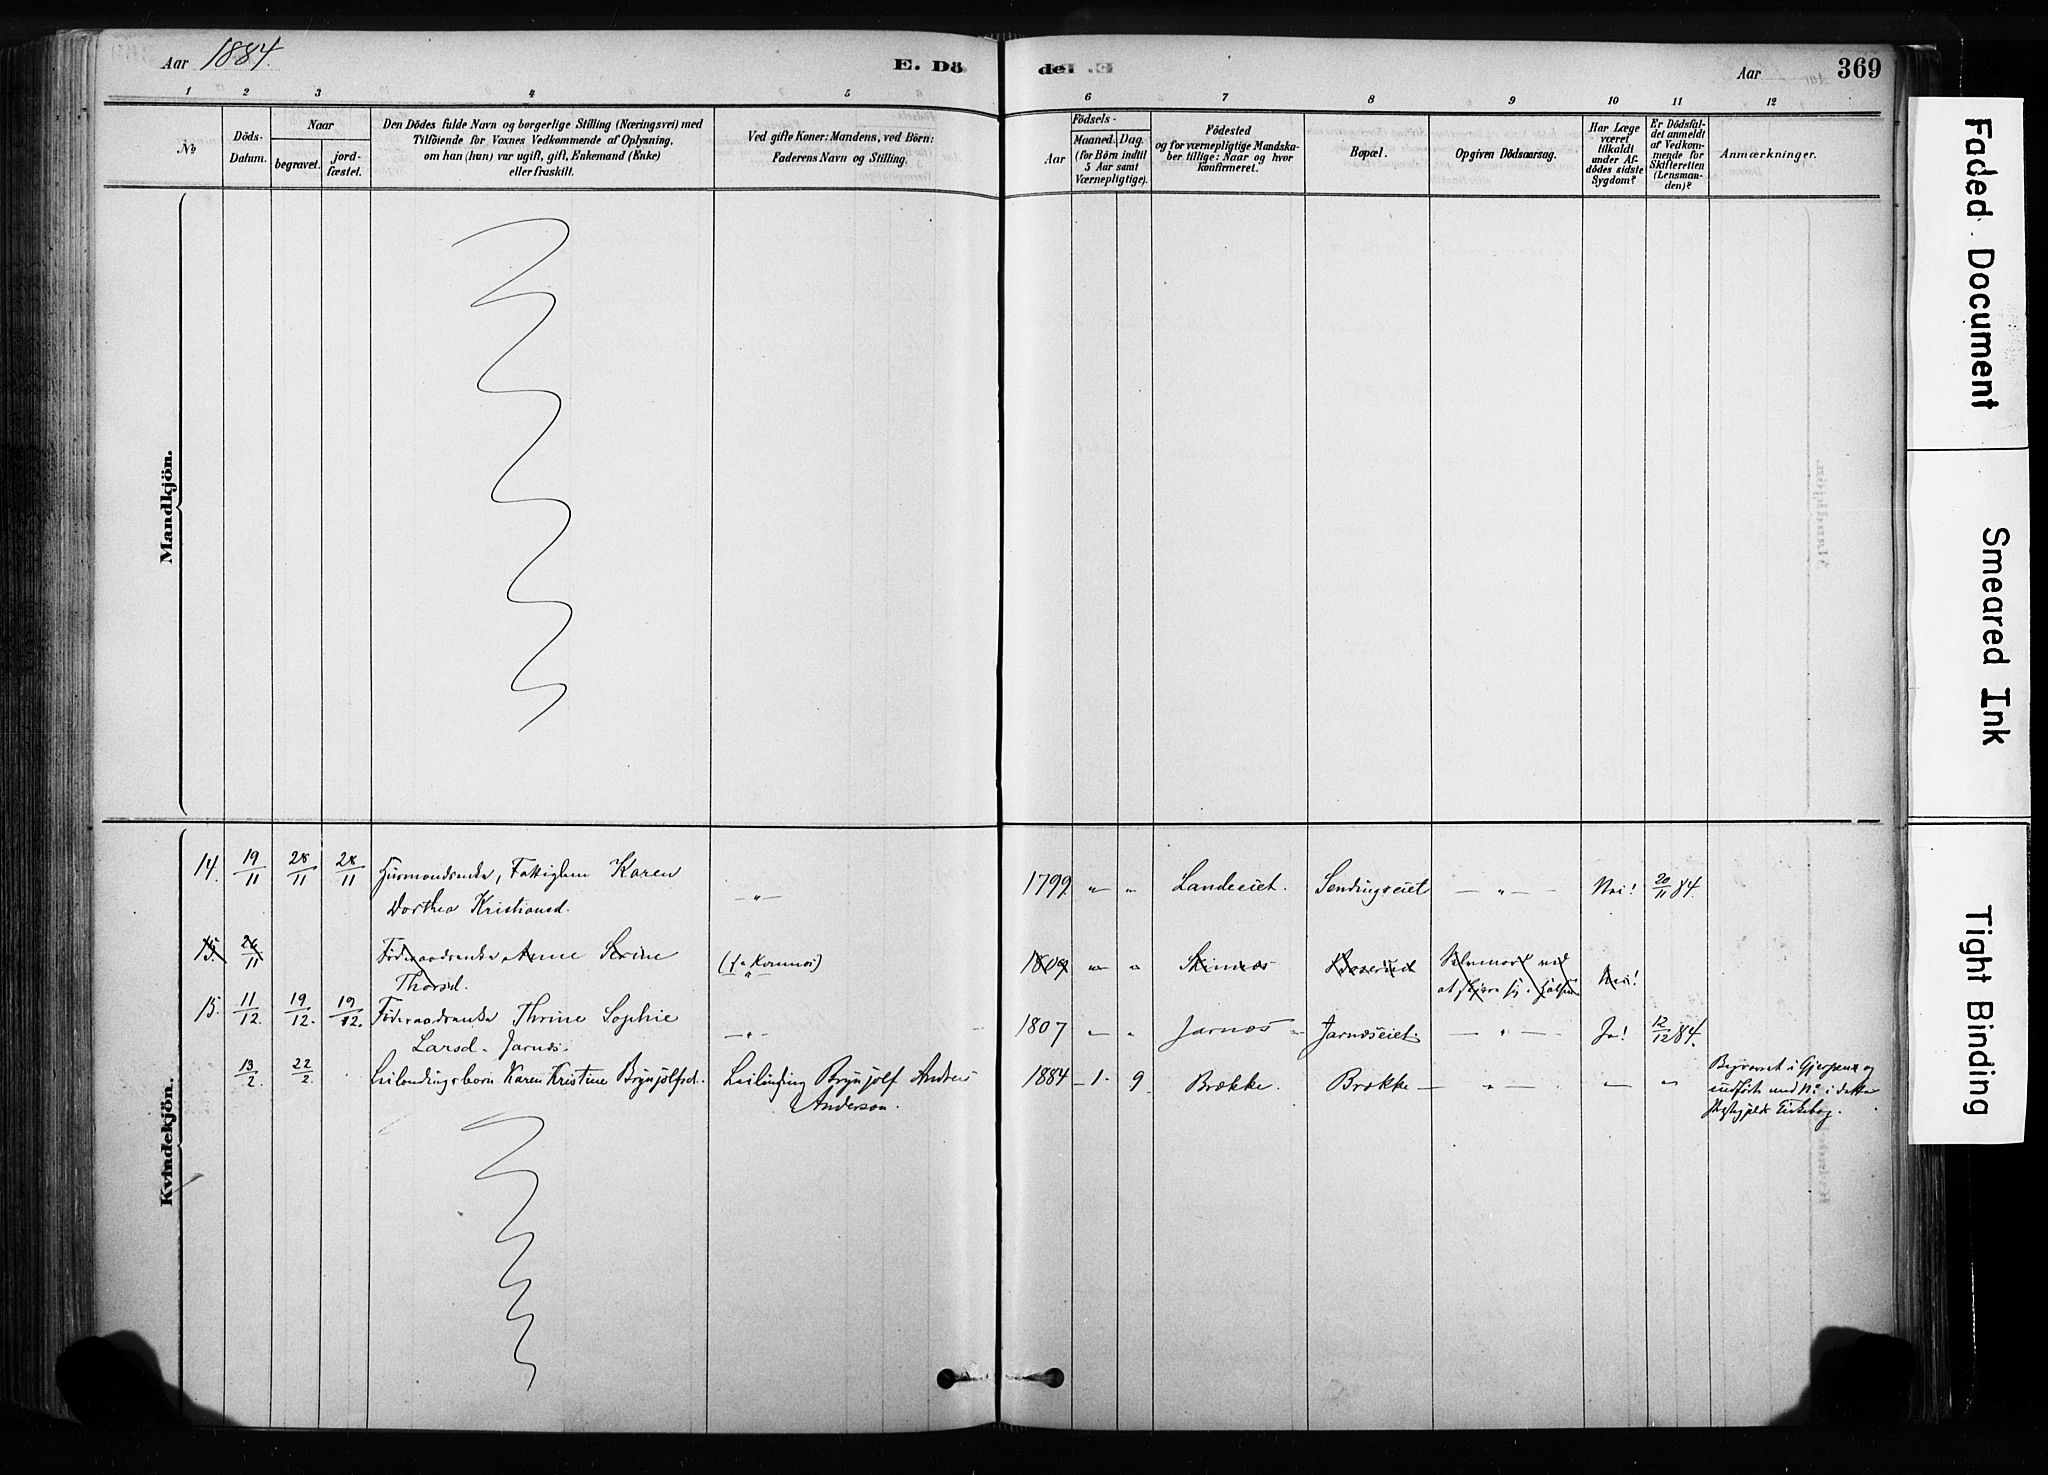 Aar 1884.
E. Dö
de E.
Aar
369
1 2 3 4 5 6 7 8 9 10 11 12
No
Döds-
Datum.
Naar
begravet.
jord-
fæstet.
Den Dödes fulde Navn og borgerlige Stilling (Næringsvei) med
Tilföiende for Voxnes Vedkommende af Oplysning,
om han (hun) var ugift, gift, Enkemand (Enke)
eller fraskilt.
Ved gifte Koner: Mandens, ved Börn:
Faderens Navn og Stilling.
Födsels-
Aar
Maaned. Dag.
(for Börn indtil
5 Aar samt
Værnepligtige).
Födested
og for værnepligtige Mandska-
ber tillige: Naar og hvor
konfirmeret.
Bopæl.
Opgiven Dödsaarsag.
Har Læge
været
tilkaldt
under Af-
dödes sidste
Sygdom?
Er Dödsfal-
det anmeldt
af Vedkom-
mende for
Skifteretten
(Lensman-
den)?
Anmærkninger.
Mandkjön.
Kvindekjön.
14. 19/11 28/11 28/11 Husmandsenke, Fattiglem Karen — " — 1799 " " Landeeiet. Søndingseiet — " — Nei! 20/11 84.
Dorthea Kristiansd.
15. 26/11 Føderaadsenke Anne Serine 1809 " "
Thorsd. Nei!
15. 11/12. 19/12. 19/12. Føderaadsenke Thrine Sophie — " — 1807 " " Jarnæs Jarnæseiet. — " — Ja! 12/12 84.
Larsd. Jarnæs.
13/2. 22/2. Leilendingsbarn Karen Kristine Brynjolfsd. Leilending Brynjolf Andreas 1884 1. 9 Brække. Brække — " — — "
Anderson.
Begravet i Gjerpene og
indført med No i dette
Kirkebog.
Faded Document
Smeared Ink
Tight Binding